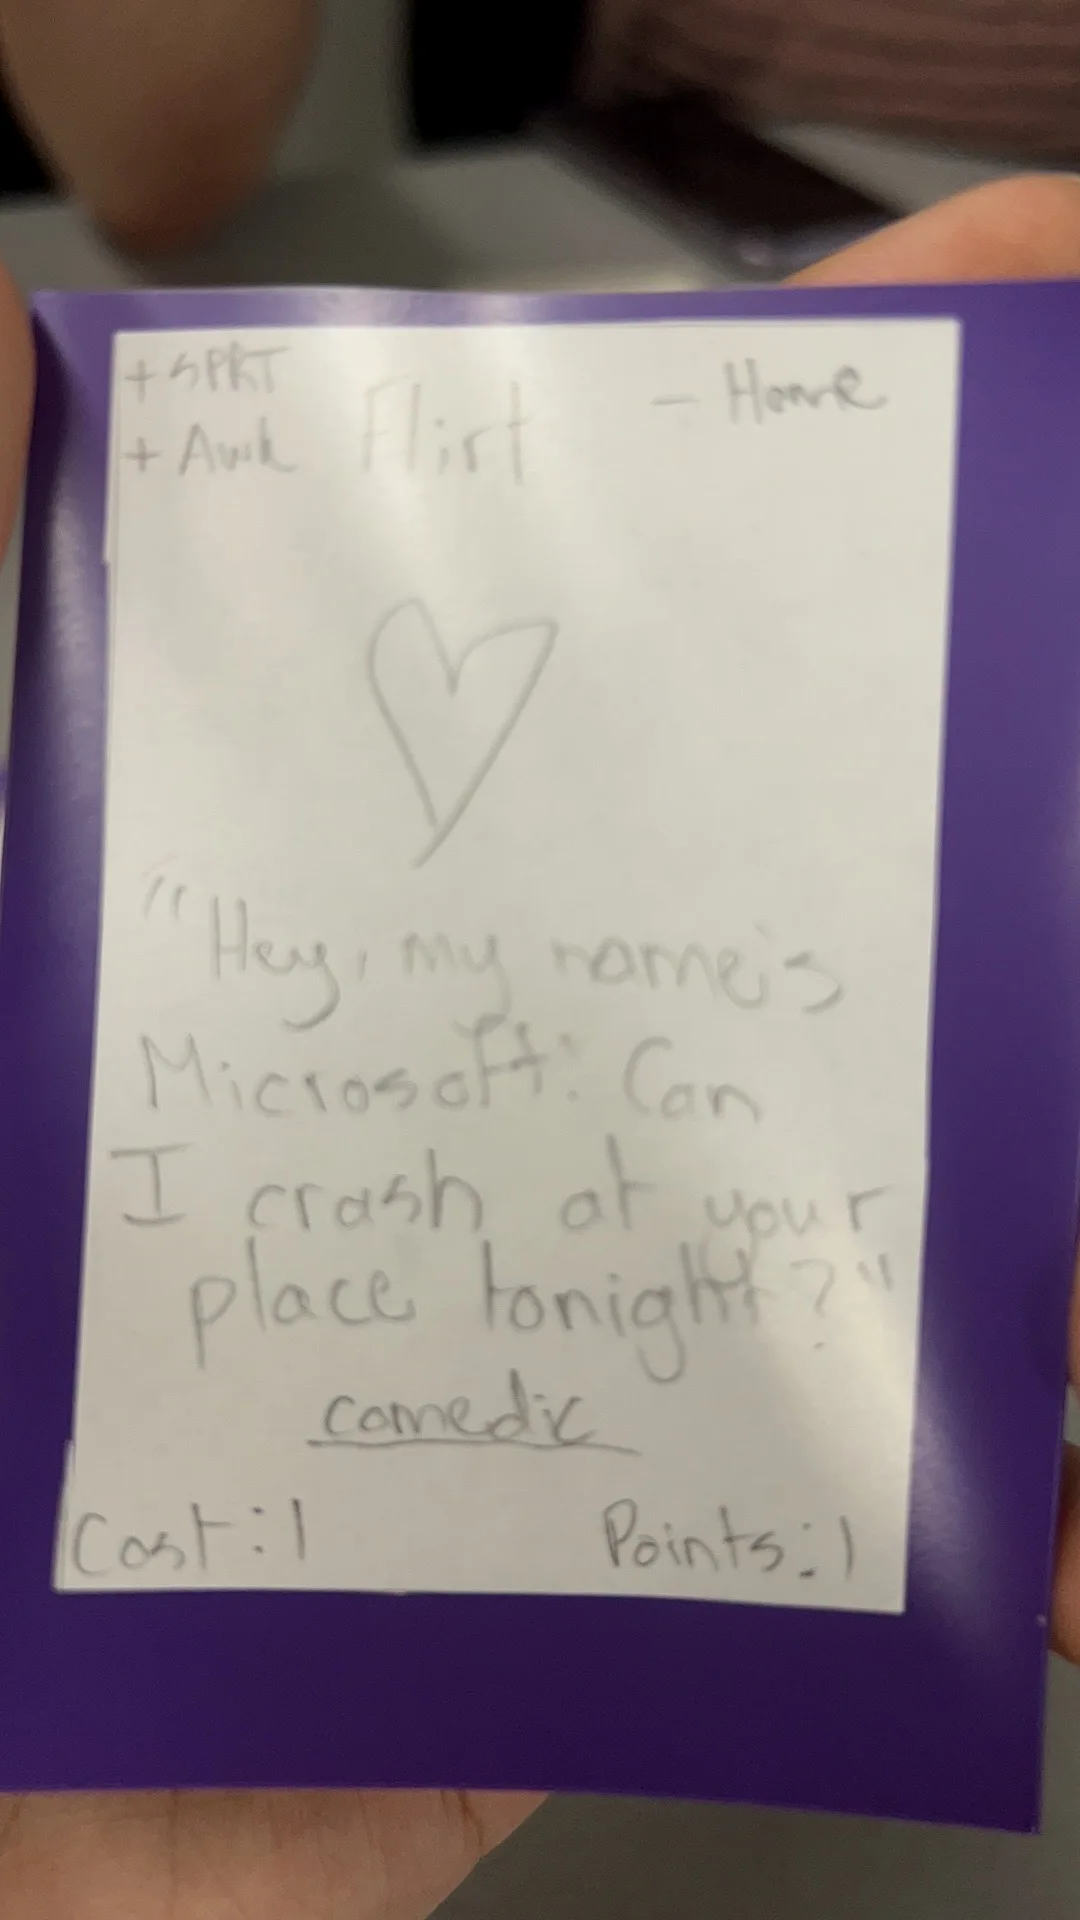 + SPRT
+ Awk
Flirt
- Home
"Hey, my name's
Microsoft. Can
I crash at your
place tonight?"
comedic
Cost: 1
Points: 1